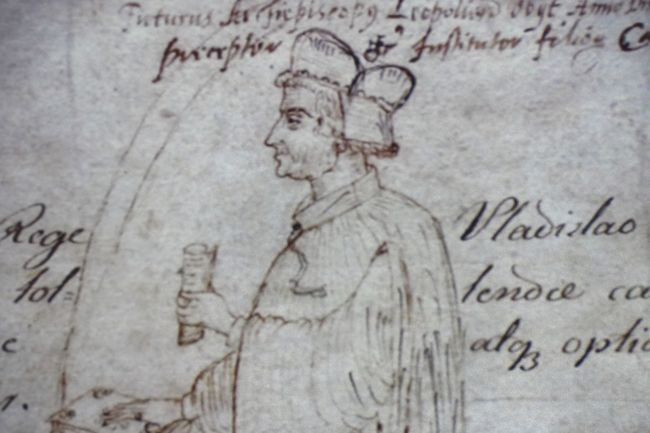 Futurus Archiepiscopꝰ Leopoliens Obijt Anno
preceptor & Institutor filior
Rege Vladislao
tol- lendæ ca
c alqꝫ optio